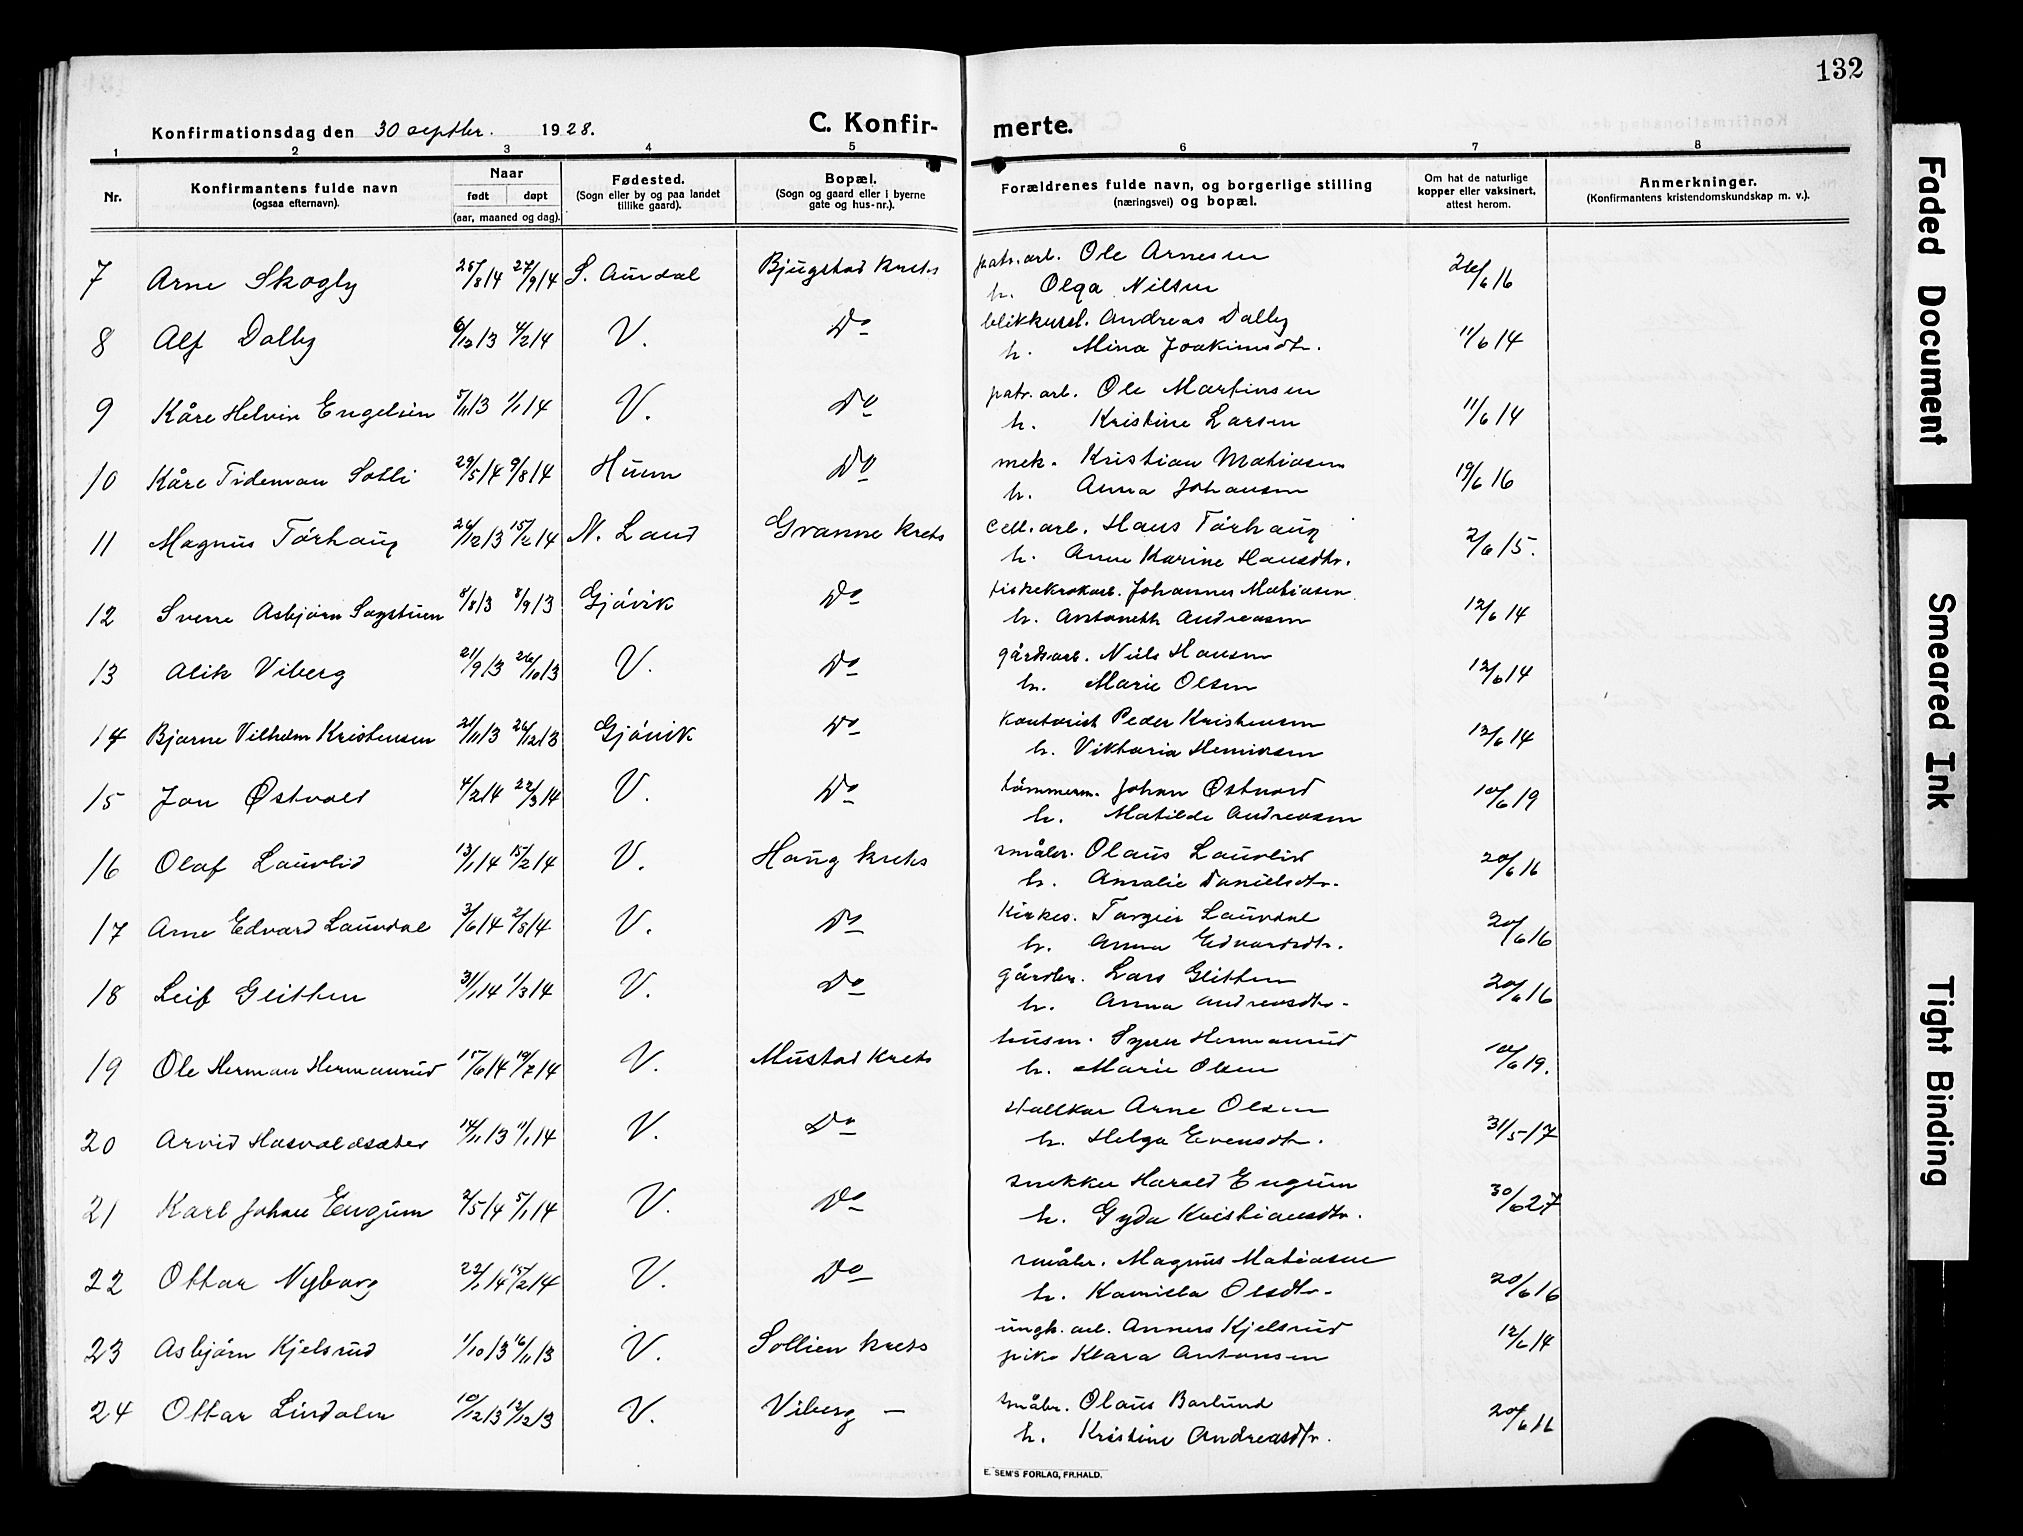 132
Konfirmationsdag den 30 septbr. 1928. C. Konfir- merte.
1 2 3 4 5 6 7 8
Nr. Konfirmantens fulde navn (ogsaa efternavn). Naar født døpt (aar, maaned og dag). Fødested. (Sogn eller by og paa landet tillike gaard). Bopæl. (Sogn og gaard eller i byerne gate og hus-nr.). Forældrenes fulde navn, og borgerlige stilling (næringsvei) og bopæl. Om hat de naturlige kopper eller vaksinert, attest herom. Anmerkninger. (Konfirmantens kristendomskundskap m. v.).
7 Arne Skogly 25/8 14 27/9 14 S. Aurdal Bjugstad krets patr. arb. Ole Arnesen 26/6 16
h. Olga Nilsen
8 Alf Dalby 6/12 13 4/2 14 V. Do blikkensl. Andreas Dalby 11/6 14
h. Mina Joakimsdtr.
9 Kåre Helvin Engelien 5/11 13 1/1 14 V. Do patr. arb. Ole Martinsen 11/6 14
h. Kristine Larsen
10 Kåre Tideman Solli 29/5 14 9/8 14 Hunn Do mek. Kristian Matiasen 19/6 16
h. Anna Johansen
11 Magnus Tørhaug 26/12 13 15/2 14 N. Land Gvanne krets cell. arb. Hans Tørhaug 2/6 15.
h. Anne Karine Hansdtr.
12 Sverre Asbjørn Sagstuen 8/8 13 8/9 13 Gjøvik Do fiskekrokarb. Johannes Matiasen 12/6 14
h. Antoneth Andreasen
13 Alik Viberg 21/9 13 26/10 13 V. Do gårdsarb. Nils Hansen 12/6 14
h. Marie Olsen
14 Bjarne Vilhelm Kristensen 21/11 13 26/12 13 Gjøvik Do kontorist Peder Kristensen 12/6 14
h. Viktoria Henriksen
15 Jon Østvold 4/2 14 22/3 14 V. Do tømmerm. Johan Østvold 10/6 19
h. Matilde Andreasen
16 Olaf Lauvlid 13/1 14 15/2 14 V. Haug krets småbr. Olaus Lauvlid 20/6 16
h. Amalie Danielsdtr.
17 Arne Edvard Lauvdal 3/6 14 2/8 14 V. Do Kirkes. Torgeir Lauvdal 20/6 16
h. Anna Edvardsdtr.
18 Leif Glitten 31/1 14 1/3 14 V. Do gårdbr. Lars Glitten 20/6 16
h. Anna Andreasdtr.
19 Ole Herman Hermanrud 15/6 14 19/7 14 V. Mustad krets husm. Syver Hermanrud 10/6 19.
h. Marie Olsen
20 Arvid Hasvoldsæter 14/11 13 11/1 14 V. Do Arne Olsen 31/5 17
h. Helga Evensdtr.
21 Karl Johan Engum 2/5 14 5/1 14 V. Do snekker Harald Engum 30/6 27
h. Gyda Kristiansdtr.
22 Ottar Nyborg 22/1 14 15/2 14 V. Do småbr. Magnus Matiasen 20/6 16
h. Kamilla Olsdtr.
23 Asbjørn Kjelsrud 1/10 13 16/11 13 V. Sollien krets ungk. arb. Anners Kjelsrud 12/6 14
pike Klara Antonsen
24 Ottar Lindalen 10/12 13 12/12 13 V. Viberg — småbr. Olaus Barlund 20/6 16
h. Kristine Andreasdtr.
E. SEM'S FORLAG, FR.HALD.
Faded Document
Smeared Ink
Tight Binding